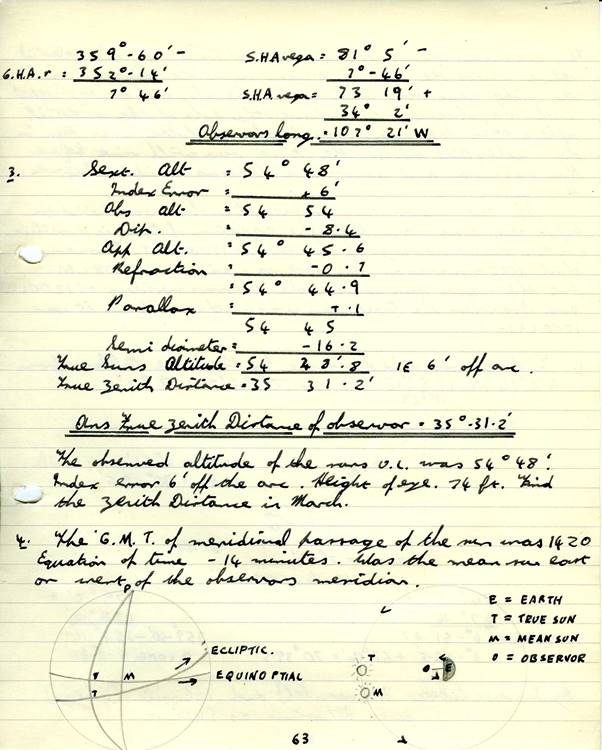 359° - 60' -
G.H.A. ♈ = 352° - 14'
7° 46'
S.H.A vega = 81° 5' -
7° - 46'
S.H.A vega = 73 19' +
34° 2'
Observors long. = 107° 21' W
3. Sext. Alt = 54° 48'
Index Error = + 6'
Obs alt = 54 54
Dip. = - 8.4
App Alt. = 54° 45.6
Refraction = - 0.7
= 54° 44.9
Parallax = + .1
54 45
Semi diameter = - 16.2
True Suns Altitude = 54 28'.8 IE 6' off arc.
True Zenith Distance = 35 31.2'
Ans True Zenith Distance of observor = 35° - 31.2'
The observed altitude of the suns U.L. was 54° 48'.
Index error 6' off the arc. Height of eye. 74 ft. Find
the Zenith Distance in March.
4. The G.M.T. of meridional passage of the sun was 1420
Equation of time - 14 minutes. Was the mean sun east
or west of the observors meridian.
P
E = EARTH
T = TRUE SUN
M = MEAN SUN
O = OBSERVOR
ECLIPTIC.
EQUINOPTIAL
♈ M
T
T
O E
M
63